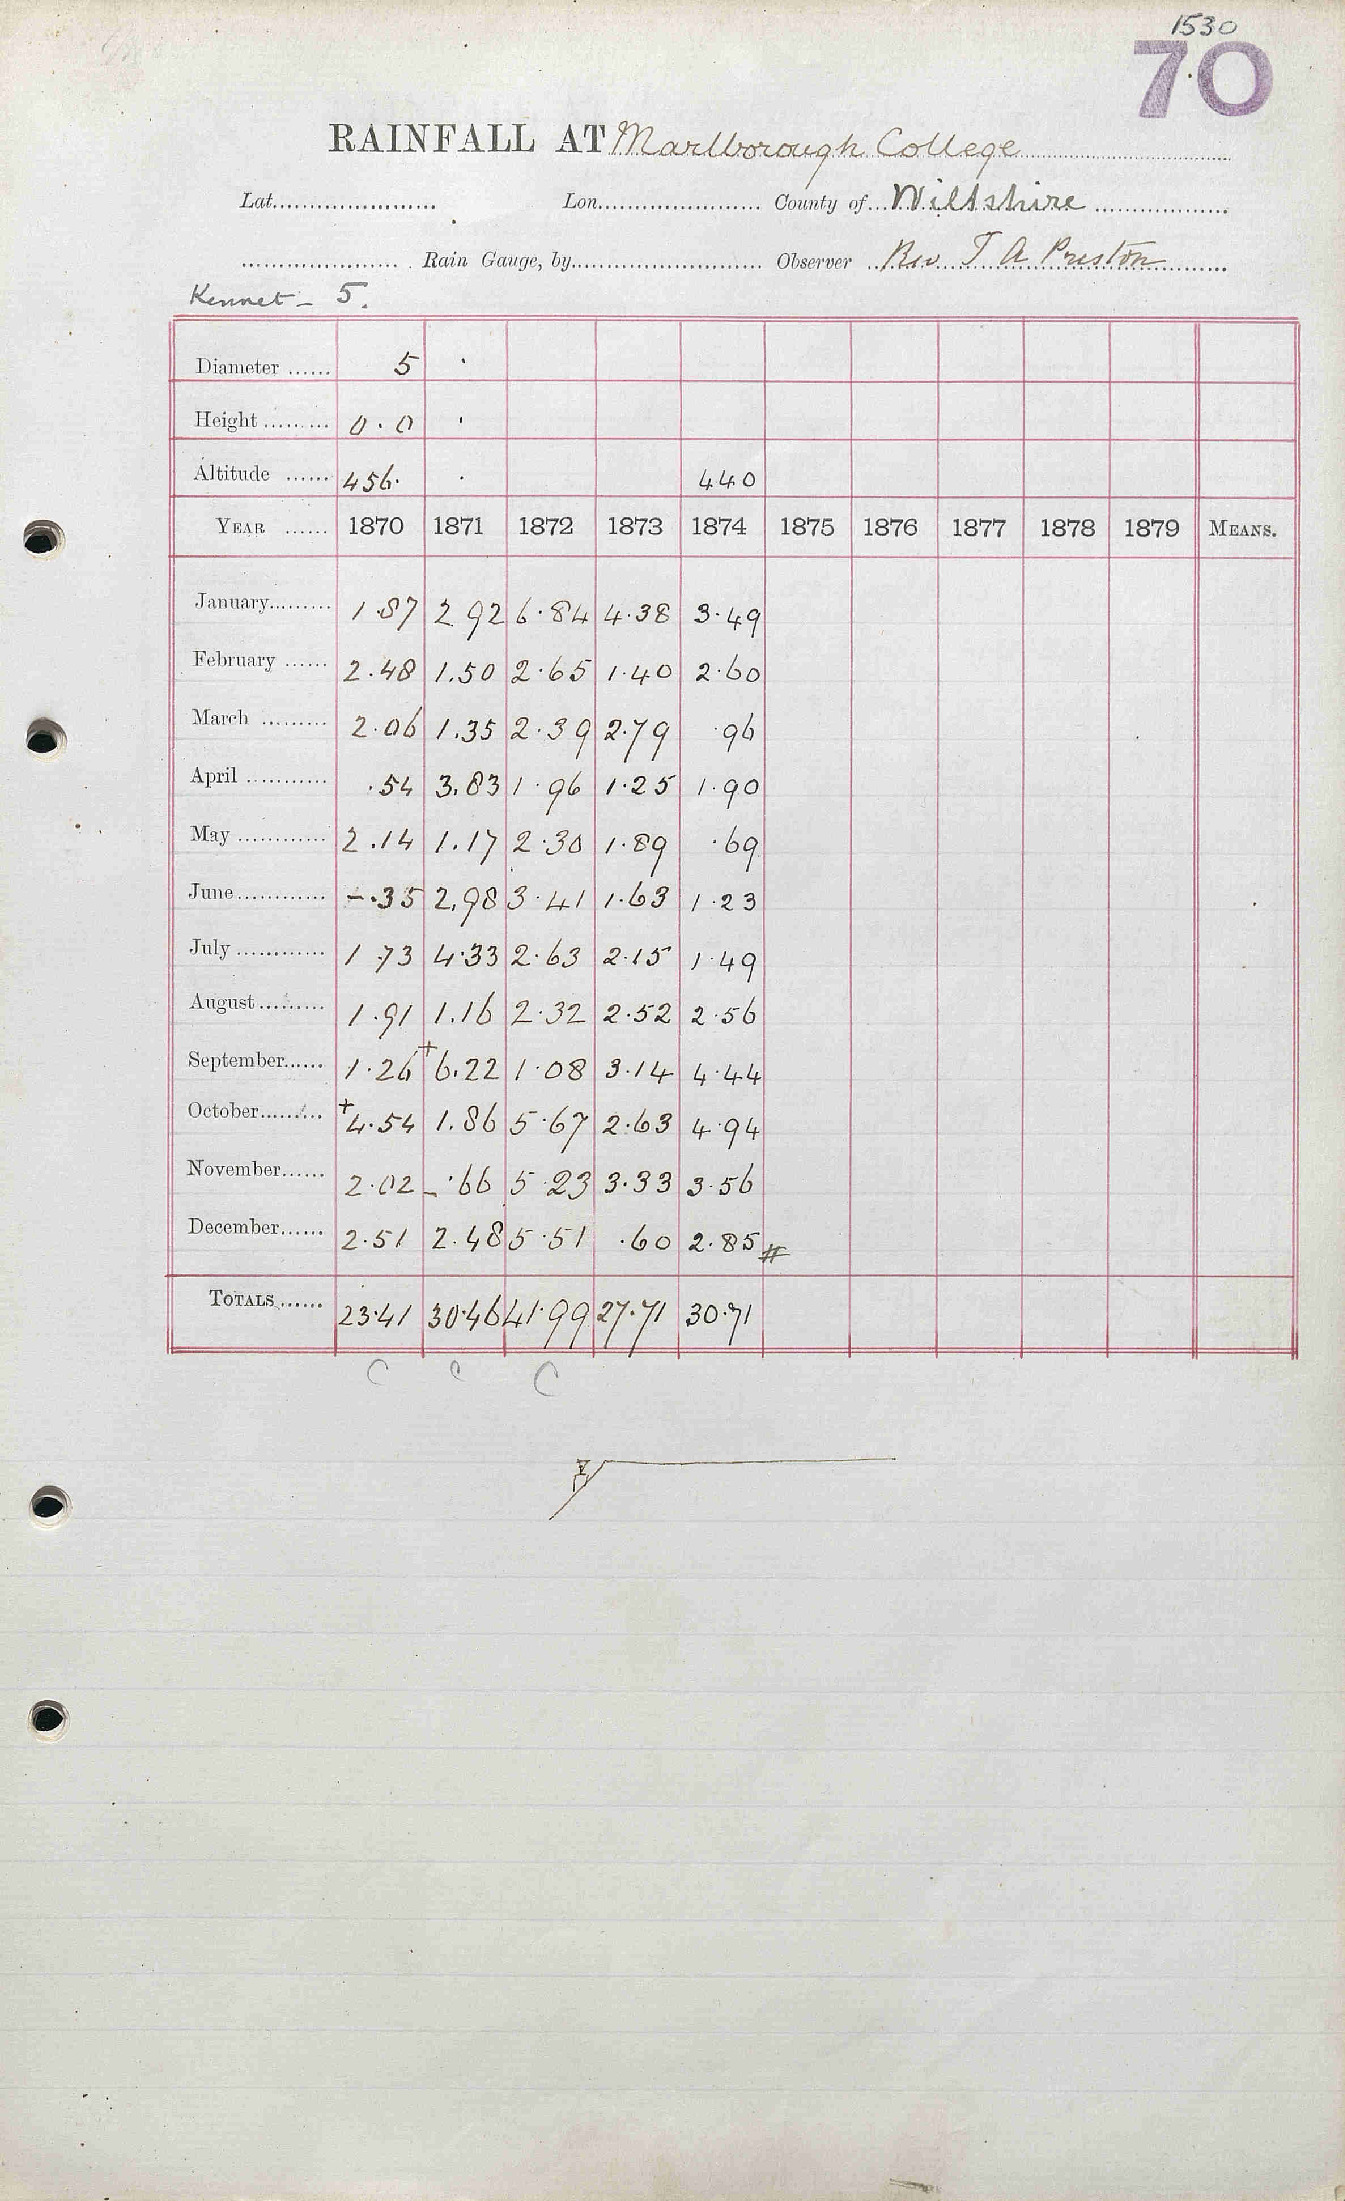 1530
70
RAINFALL AT Marlborough College
Lat. Lon. County of Wiltshire
Rain Gauge, by Observer Rev T A Preston
Kennet – 5.
Diameter 5
Height 0.0
Altitude 456. 440
YEAR 1870 1871 1872 1873 1874 1875 1876 1877 1878 1879 MEANS.
January 1.87 2 92 6.84 4.38 3.49
February 2.48 1.50 2.65 1.40 2.60
March 2.06 1.35 2.39 2.79 .96
April .54 3.83 1.96 1.25 1.90
May 2.14 1.17 2.30 1.89 .69
June –.35 2.98 3.41 1.63 1.23
July 1.73 4.33 2.63 2.15 1.49
August 1.91 1.16 2.32 2.52 2.56
September 1.26 +6.22 1.08 3.14 4.44
October +4.54 1.86 5.67 2.63 4.94
November 2.02 –.66 5.23 3.33 3.56
December 2.51 2.48 5.51 .60 2.85 #
TOTALS 23.41 30.46 41.99 27.71 30.71
C C C